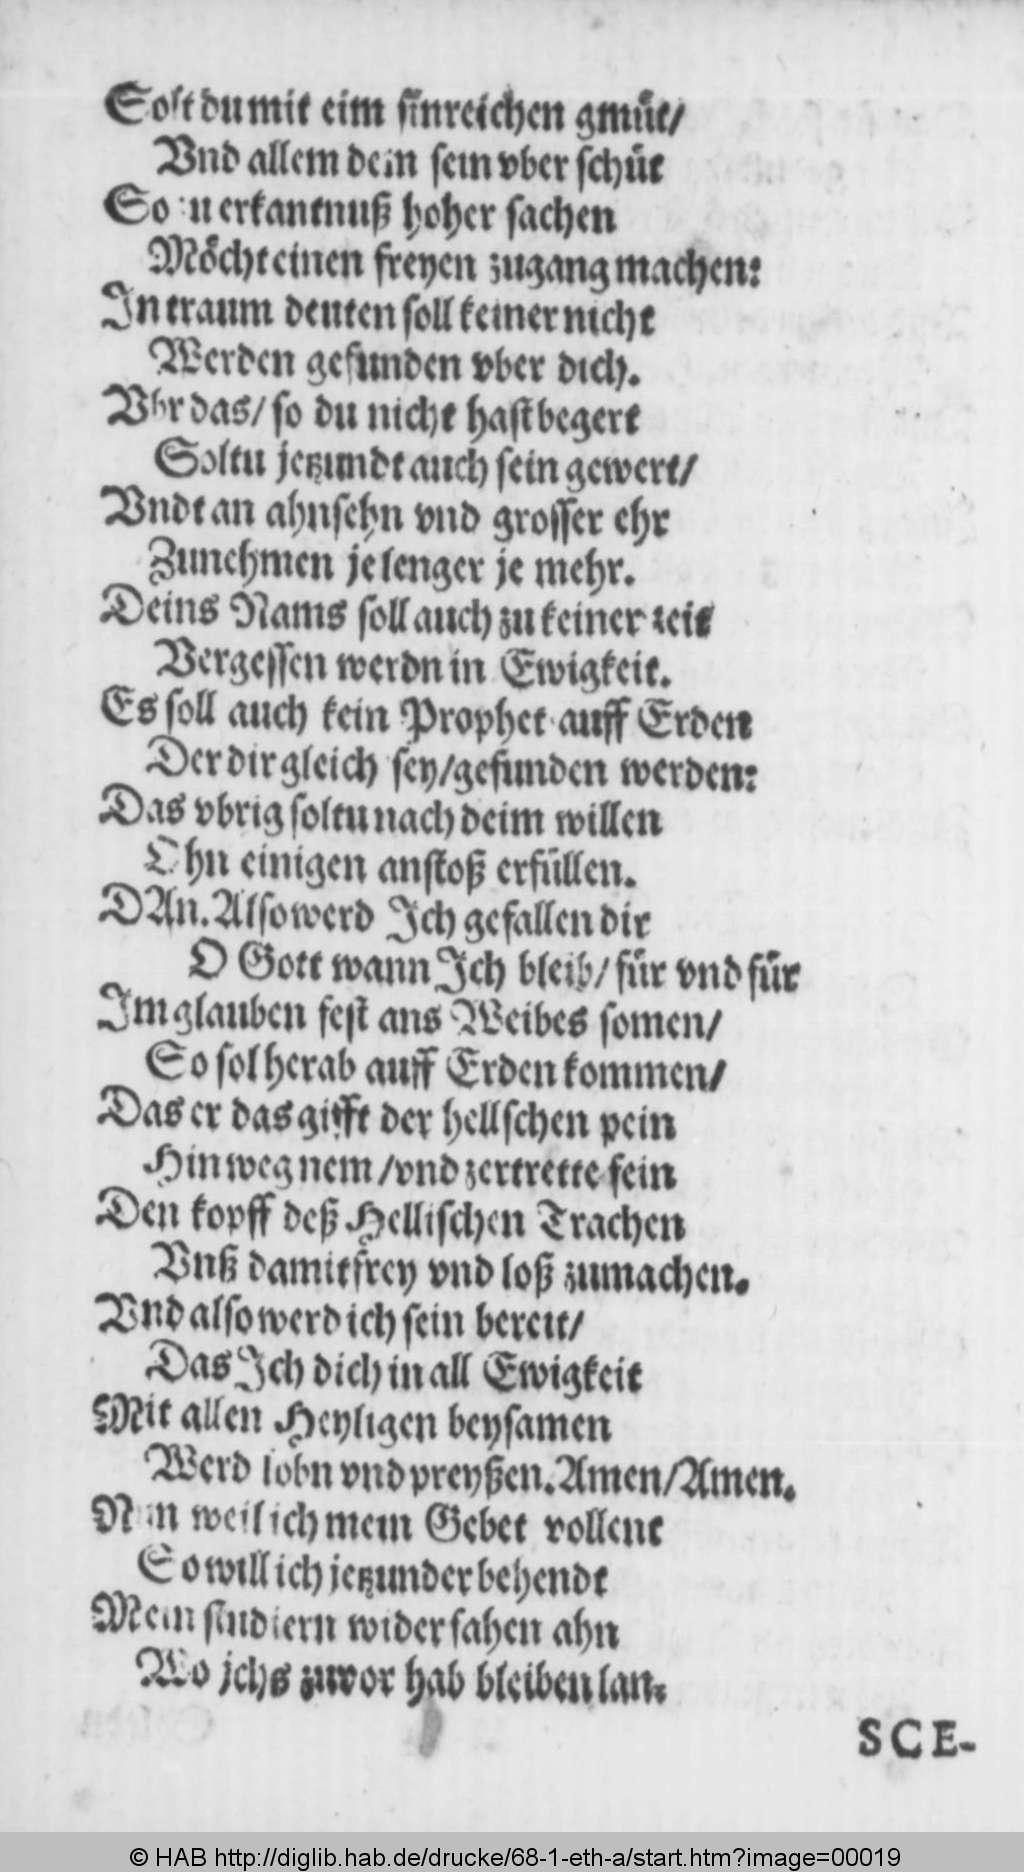 Solt du mit eim sinreichen gmüt/
Vnd allem dein sein vber schüt
So zu erkantnuß hoher sachen
Möcht einen freyen zugang machen:
In traum deuten soll keiner nicht
Werden gefunden vber dich.
Vbr das/ so du nicht hast begert
Soltu jetzundt auch sein gewert/
Vndt an ahnsehn vnd grosser ehr
Zunehmen je lenger je mehr.
Deins Nams soll auch zu keiner zeit
Vergessen werdn in Ewigkeit.
Es soll auch kein Prophet auff Erden
Der dir gleich sey/gefunden werden:
Das vbrig soltu nach deim willen
Ohn einigen anstoß erfüllen.
DAn. Also werd Ich gefallen dir
O Gott wann Ich bleib/ für vnd für
Im glauben fest ans Weibes somen/
So sol herab auff Erden kommen/
Das er das gifft der hellschen pein
Hin weg nem/vnd zertrette fein
Den kopff deß Hellischen Trachen
Vnß damit frey vnd loß zumachen.
Vnd also werd ich sein bereit/
Das Ich dich in all Ewigkeit
Mit allen Heyligen beysamen
Werd lobn vnd preyßen. Amen/Amen.
Nun weil ich mein Gebet vollent
So will ich jetzunder behendt
Mein studiern wider fahen ahn
Wo jchs zuvor hab bleiben lan.
SCE-
© HAB http://diglib.hab.de/drucke/68-1-eth-a/start.htm?image=00019